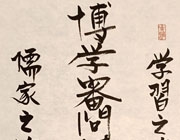 学習之
博学審問
儒家之